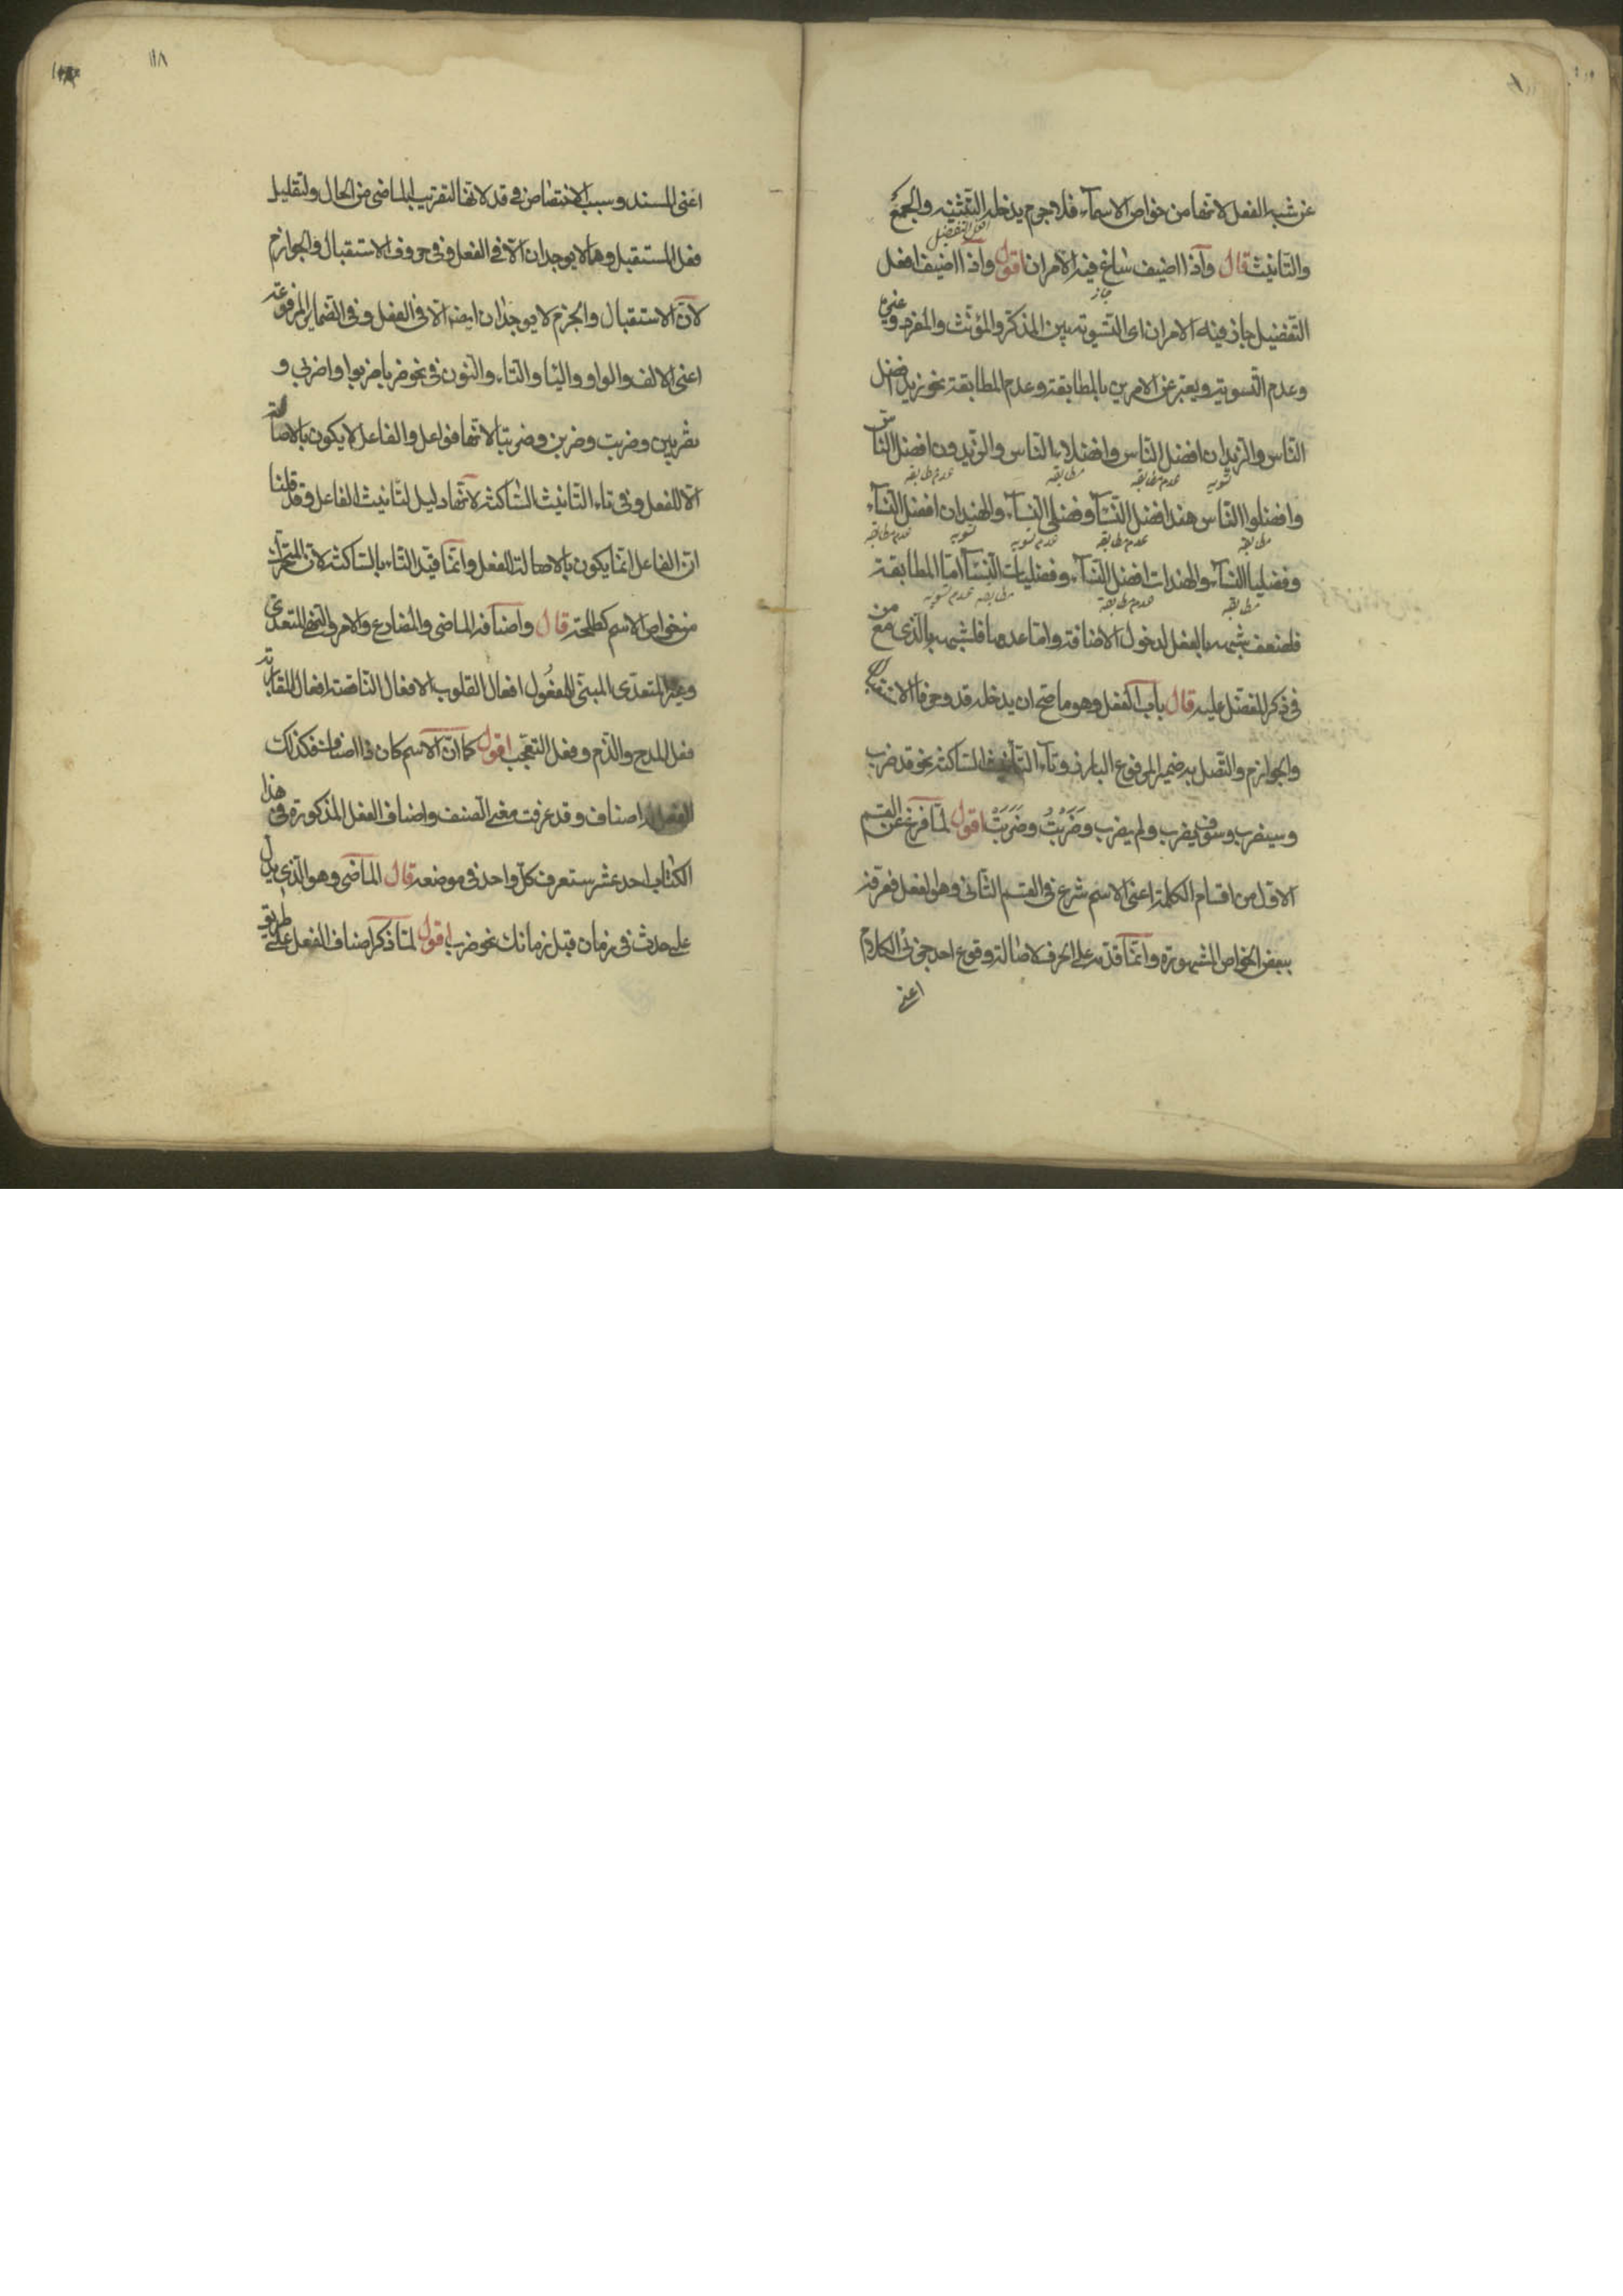 عن شبه الفعل لانها من خواص الاسمآء فلا جرم يدخله التثنيه والجمع
افعل التفضيل
والتانيث قال وآذا اضيف ساغ فيه الامران اقول وآذا اضيف افعل
جاز
التفضيل جاذ فيه الامران اى التسوية بين المذكر والمؤنث والمفرد وغيره
وعدم التسوية ويعبر عن الامرين بالمطابقة وعدم المطابقة نحو زيد افضل
الناس والزيدان افضل الناس وافضلا الناس والزيدون افضل الناس
تسويه عدم مطابقه مطابقه عدم مطابقه
وافضلوا الناس هند افضل النسآ وفضلى النسآء والهندان افضل النسآء
مطابقه عدم مطابقه عدم تسويه تسويه عدم مطابقه
وفضليا النسآء والهندات افضل النسآء وفضليات النسآ اما المطابقة
مطابقه عدم مطابقة مطابقه عدم تسويه
فلضعف شبهه بالفعل لدخول الاضافة واما عدمها فلشبهه بالذى مع من
فى ذكر المفضل عليه قال باب الفعل وهو ما صح ان يدخله قد وحرفا الاستقبال
والجوازم واتصل به ضمير المرفوع البارز وتآء التأنيث الساكنة نحو قد ضرب
وسيضرب وسوف يضرب ولم يضرب وضَرَبْتُ وضَرَبَتْ اقول لما فرغ عن القسم
الاول من اقسام الكلمة اعنى الاسم شرع فى القسم الثانى وهو الفعل فعرفه
ببعض الخواص المشهورة وانما قدمه على الحرف لاصالته وقوع احد جزئى الكلام
اعنى
١١٨
اعنى المسند وسبب الاختصاص فى قد لانها لتقريب الماضى من الحال ولتقليل
فعل المستقبل وهما لا يوجدان الا فى الفعل وفى حروف الاستقبال والجوازم
لان الاستقبال والجزم لا يوجدان ايضا الا فى الفعل وفى الضماير المرفوعة
اعنى الالف والواو واليا والتاء والنون فى نحو ضربا ضربوا واضربى و
تضربين وضربت وضربن وضربتا لانها فواعل والفاعل لا يكون بالاصالة
الا للفعل وفى تاء التانيث الساكنة لانها دليل لتانيث الفاعل وقد قلنا
ان الفاعل انما يكون بالاصالة للفعل وانما قيد التاء بالساكنة لان المتحركة
من خواص الاسم كطلحة قال واصنافه الماضى والمضارع والامر والنهى المتعدى
وغير المتعدى المبنى للمفعول افعال القلوب الافعال الناقصة افعال المقاربة
فعل المدح والذم وفعل التعجب اقول كما ان الاسم كان ذا اصناف فكذلك
الفعل اصناف وقد عرفت معنى الصنف واصناف الفعل المذكورة فى هذا
الكتاب احد عشر ستعرف كل واحد فى موضعه قال الماضى وهو الذى يدل
على حدث فى زمان قبل زمانك نحو ضرب اقول لما ذكر اصناف الفعل على طريق